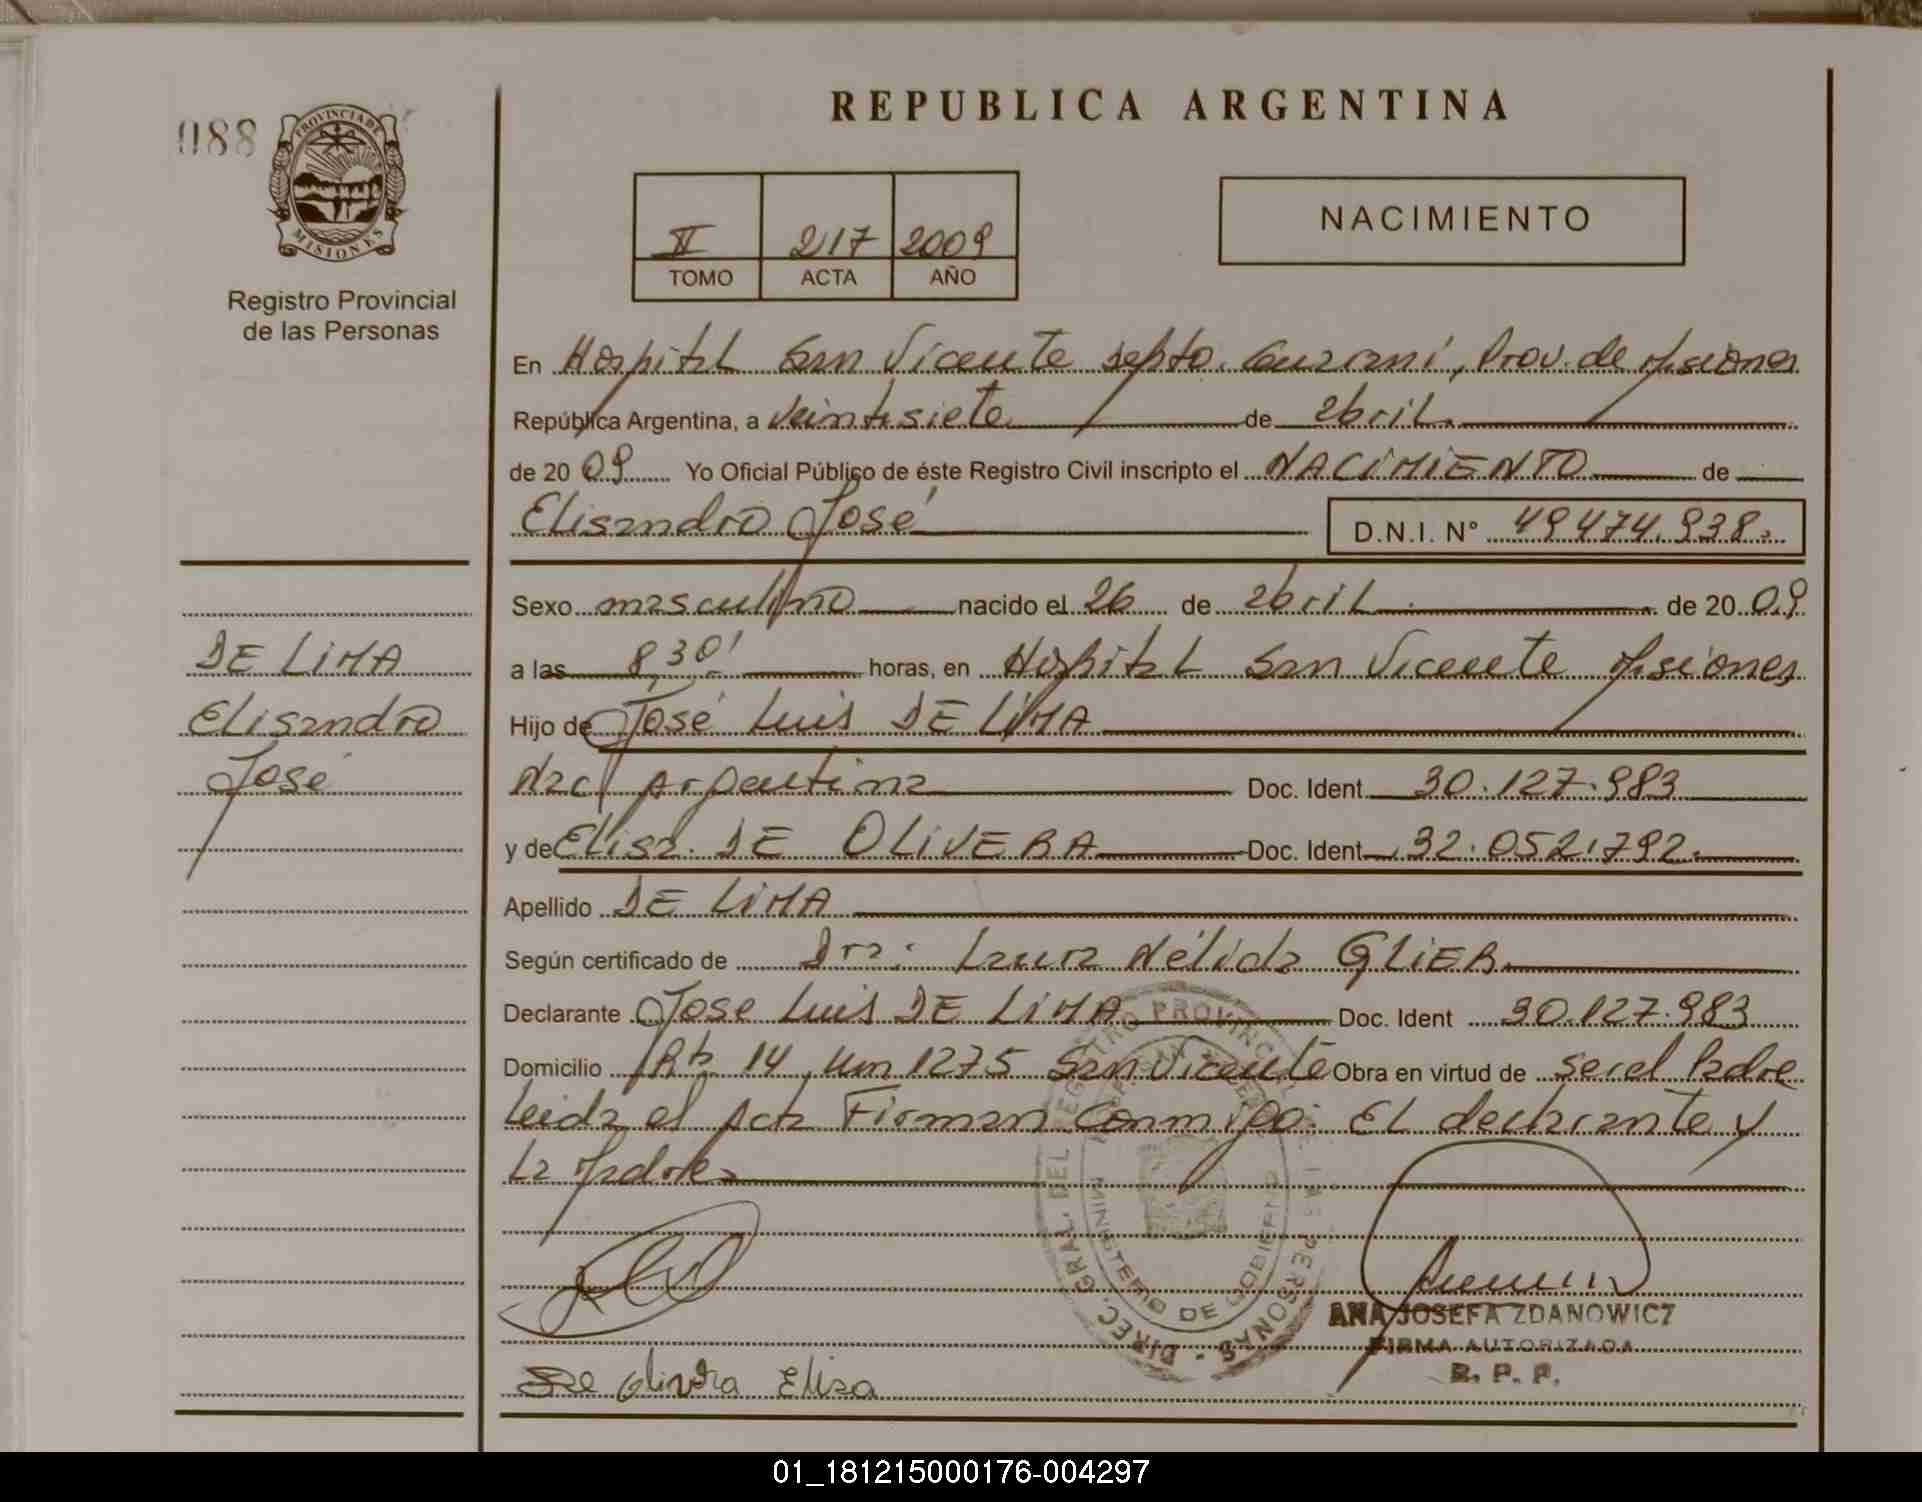 REPUBLICA ARGENTINA
088
PROVINCIA DE
MISIONES
Registro Provincial
de las Personas
II 217 2009
TOMO ACTA AÑO
NACIMIENTO
En Hospital San Vicente Depto. Guarani, Prov. de Misiones
República Argentina, a veintisiete de abril
de 2009 Yo Oficial Público de éste Registro Civil inscripto el NACIMIENTO de
Elisandro José D.N.I. Nº 49474.938.
Sexo masculino nacido el 26 de abril de 2009
a las 8,30' horas, en Hospital San Vicente Misiones
Hijo de José Luis DE LIMA
Nac. Argentina Doc. Ident. 30.127.983
y de Elisa DE OLIVERA Doc. Ident. 32.052.792.
Apellido DE LIMA
Según certificado de Dra: Laura Nélida GLIER
Declarante Jose Luis DE LIMA Doc. Ident 30.127.983
Domicilio Rta 14 km 1275 San Vicente Obra en virtud de ser el Padre
Leida el Acta Firman Conmigo: El declarante y
La Madre
DE LIMA
Elisandro
José
DIREC. GRAL. DEL REGISTRO PROVINCIAL DE LAS PERSONAS
MINISTERIO DE GOBIERNO
ANA JOSEFA ZDANOWICZ
FIRMA AUTORIZADA
R. P. P.
De Olivera Elisa
01_181215000176-004297